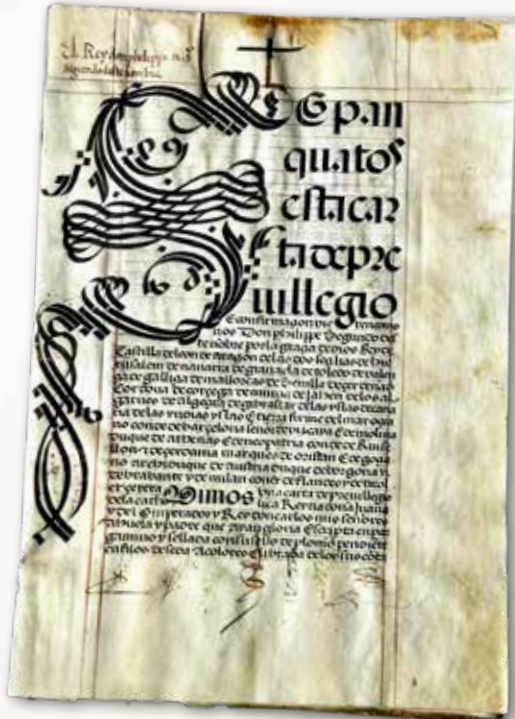 El Rey don phelippe n.ro
segundo deste nombre
SEpan
quãtos
esta car
ta de pre
uillegio
E confirmaçion vie
como Don phelippe Segundo de
te nõbre por la graçia de dios Rey de
Castilla de leon de aragon de las dos seçilias de hie
rusalem de nauarra de granada de toledo de valen
çia de galliçia de mallorcas de Seuilla de çerdeña de
Cordoua de corçega de murçia de Jahen de los al
garues de algezira de gibraltar de las yslas de cana
ria de las yndias yslas E tierra firme del mar oçea
no conde de barçelona señor de vizcaya E de molina
duque de athenas E de neopatria conde de Ruise
llon y de çerdania marques de oristan E de goçia
no archiduque de austria duque de borgoña y
de brabante y de milan conde de flandes y de tirol
etçetera Vimos vna carta de preuillegio
de la catho lica Reyna doña Juana
y del Emperador y Rey don carlos mis señores
abuela y padre que ayan gloria Escripta en par
gamino y sellada con su sello de plomo pendiente
en filos de seda A colores E librada de los sus cõta